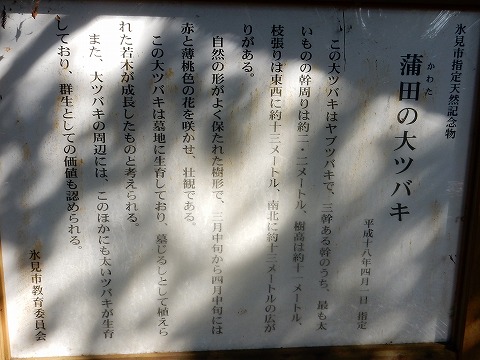 氷見市指定天然記念物
かわた
蒲田の大ツバキ
平成十八年四月二日 指定
この大ツバキはヤブツバキで、三幹ある幹のうち、最も太
いものの幹周りは約二・二メートル、樹高は約十一メートル、
枝張りは東西に約十三メートル、南北に約十三メートルの広が
りがある。
自然の形がよく保たれた樹形で、三月中旬から四月中旬には
赤と薄桃色の花を咲かせ、壮観である。
この大ツバキは墓地に生育しており、墓じるしとして植えら
れた若木が成長したものと考えられる。
また、大ツバキの周辺には、このほかにも太いツバキが生育
しており、群生としての価値も認められる。
氷見市教育委員会